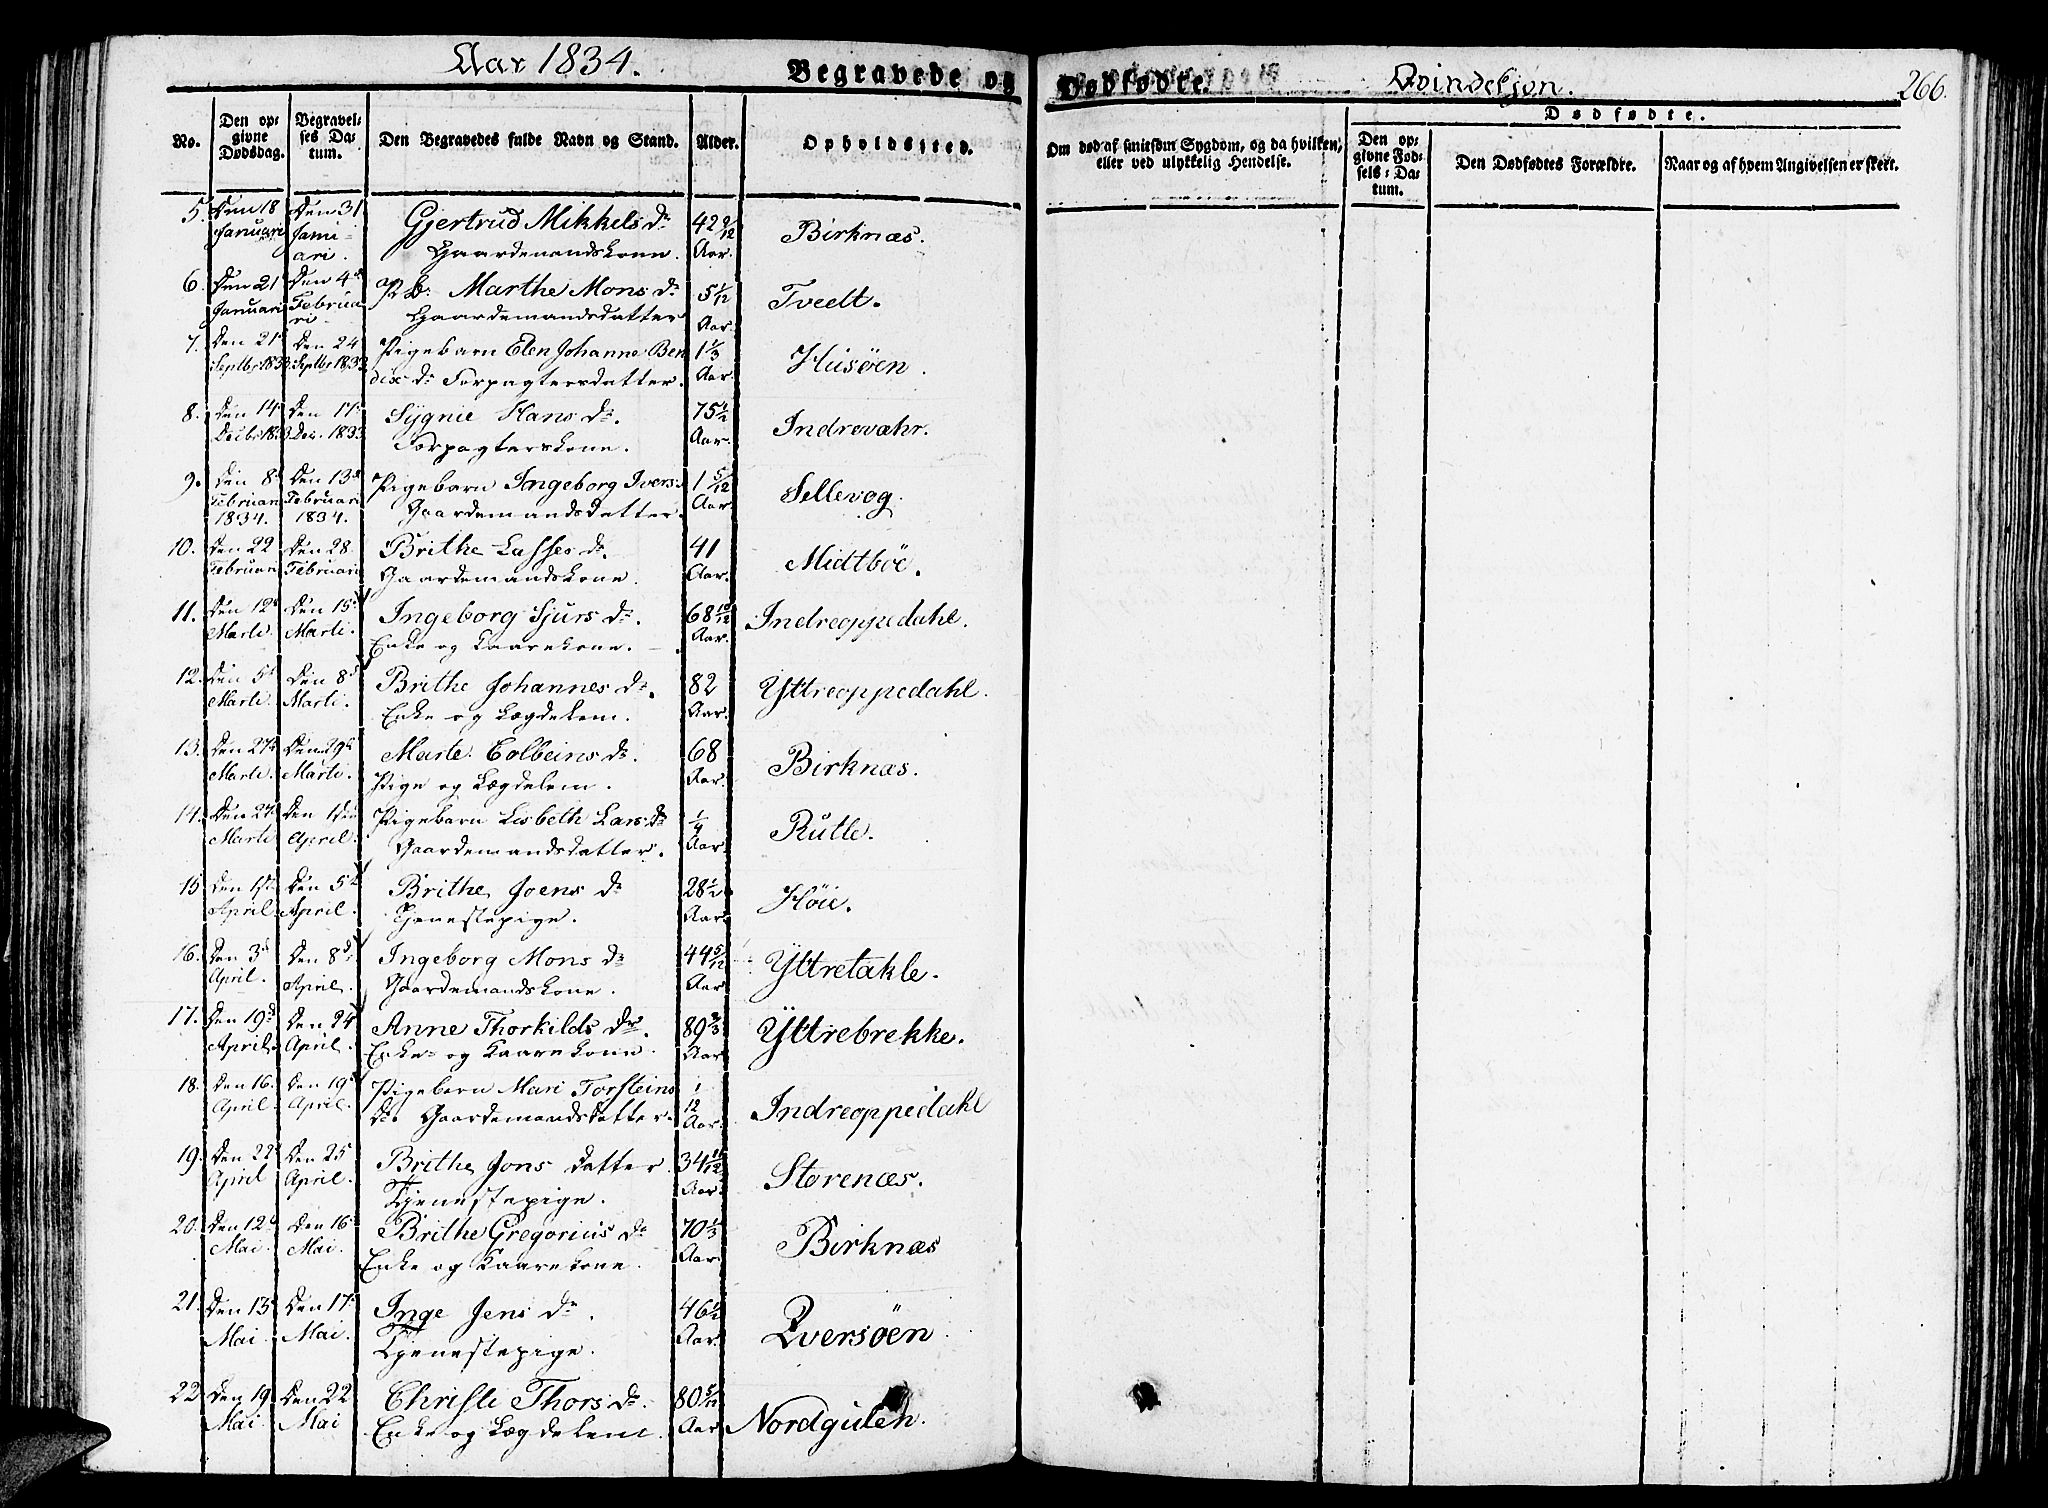 Aar 1834.
Begravede og Dødfødte.
Qvindekjøn.
266.
No.
Den opgivne Dødsdag.
Begravelses Datum.
Den Begravedes fulde Navn og Stand.
Alder.
Opholdssted.
Om død af smitsom Sygdom, og da hvilken, eller ved ulykkelig Hendelse.
Dødfødte.
Den opgivne Fødsels-Datum.
Den Dødfødtes Forældre.
Naar og af hvem Angivelsen er skeet.
5. Den 18 Januari Den 31 Januari. Gjertrud Mikkels Dr 42 9/12 Aar. Birknæs.
Gaardemandskone.
6. Den 21 Januari Den 4d Februari P. b: Marthe Mons Dr 5 1/12 Aar. Tveelt.
Gaardemandsdatter
7. Den 21 Septbr 1833. Den 24 Septbr 1833. Pigebarn Elen Johanne Ben 1 1/3 Aar. Husøen.
dix Dr Forpagtersdatter.
8. Den 14 Decbr 1833. Den 17 Dec. 1833 Sygnie Hans Dr. 75 1/2 Aar. Indrevahr.
Forpagterskone.
9. Den 8d Februari 1834. Den 13d Februari 1834. Pigebarn Ingeborg Ivers 1 5/12 Aar. Sellevog.
Gaardemandsdatter.
10. Den 22 Februari Den 28 Februari Brithe Lasses Dr. 41 Aar. Midtbøe.
Gaardemandskone.
11. Den 12 Marti. Den 15 Marti. Ingeborg Sjurs Dr. 68 10/12 Aar. Indreoppedahl.
Enke og Kaarekone.
12. Den 5 Marti. Den 8d Marti. Brithe Johannes Dr. 82 Aar. Yttreoppedahl.
Enke og Lægdelem.
13. Den 27 Marti. Den 29 Marti. Marte Colbeins Dr. 68 Aar. Birknæs.
Pige og Lægdelem.
14. Den 27 Marti Den 1den April. Pigebarn Lisbeth Lars Dr 1/4 Aar Rutle.
Gaardemandsdatter.
15 Den 1ste April. Den 5 April. Brithe Joens Dr 28 1/2 Aar. Høie.
Tjenestepige.
16. Den 3d April. Den 8d April. Ingeborg Mons Dr 44 5/12 Aar Yttretakle.
Gaardemandskone.
17. Den 19d April. Den 24 April. Anne Thorkilds Dr. 89 2/3 Aar Yttrebrekke.
Enke og Kaarekone.
18. Den 16. April Den 19 April. Pigebarn Mari Torsteins 1/12 Aar. Indreoppedahl
Dr. Gaardemandsdatter.
19. Den 22 April Den 25 April. Brithe Jons Datter. 34 11/12 Aar. Storenæs.
Tjenestepige.
20. Den 12 Mai. Den 16 Mai. Brithe Gregorius Dr 70 1/3 Aar. Birknæs
Enke og Kaarekone.
21. Den 13 Mai. Den 17 Mai. Inge Jens Dr. 46 1/2 Aar. Qversøen
Tjenestepige.
22 Den 19. Mai Den 22 Mai Christi Thors Dr. 80 5/12 Aar Nordgulen.
Enke og Lægdelem.